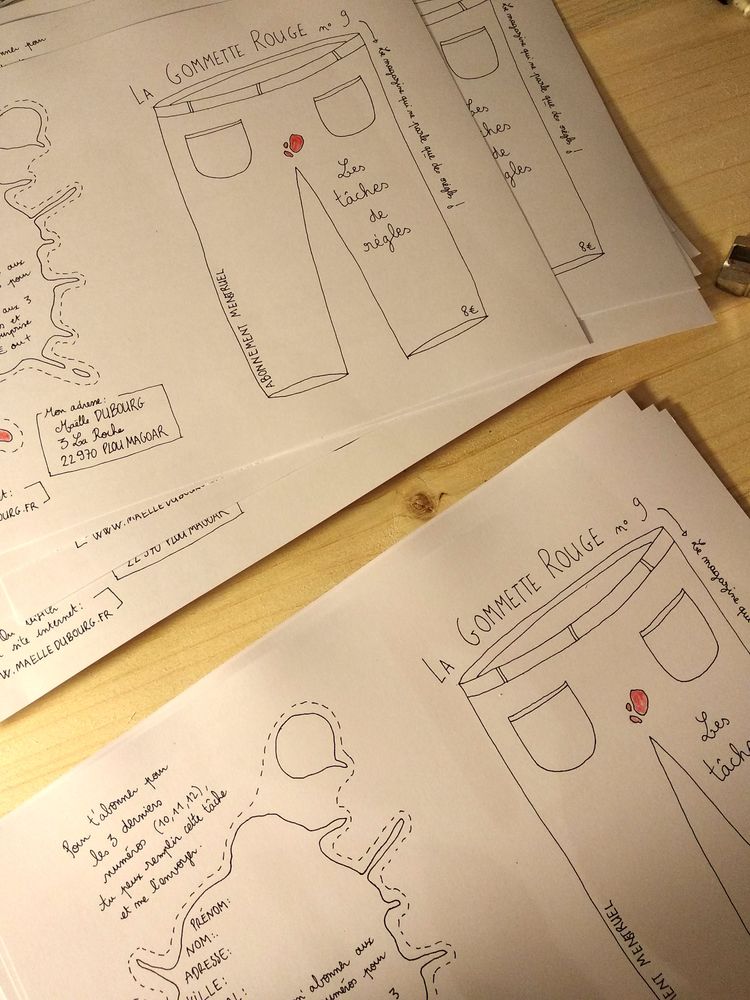 LA GOMMETTE ROUGE n° 9
Le magazine qui ne parle que des règles !
Les
tâches
de
règles
ABONNEMENT MENSTRUEL
8€
aux
pour
aux 3
et
surprise
€ ou +
Mon adresse:
Maëlle DUBOURG
3 La Roche
22970 PLOUMAGOAR
BOURG.FR
Le magazine qui ne parle que des règles !
Les
ches
de
gles
8€
WWW.MAELLEDUBOURG.
22970 PLOUMAGOAR
Ou visiter
site internet:
W.MAELLEDUBOURG.FR
LA GOMMETTE ROUGE n° 9
Le magazine qu
Les
tâche
MENT MENSTRUEL
Pour t'abonner pour
les 3 derniers
numéros (10,11,12),
tu peux remplir cette tâche
et me l'envoyer.
PRÉNOM:
NOM:
ADRESSE:
VILLE:
m'abonner aux
numéros pour
3